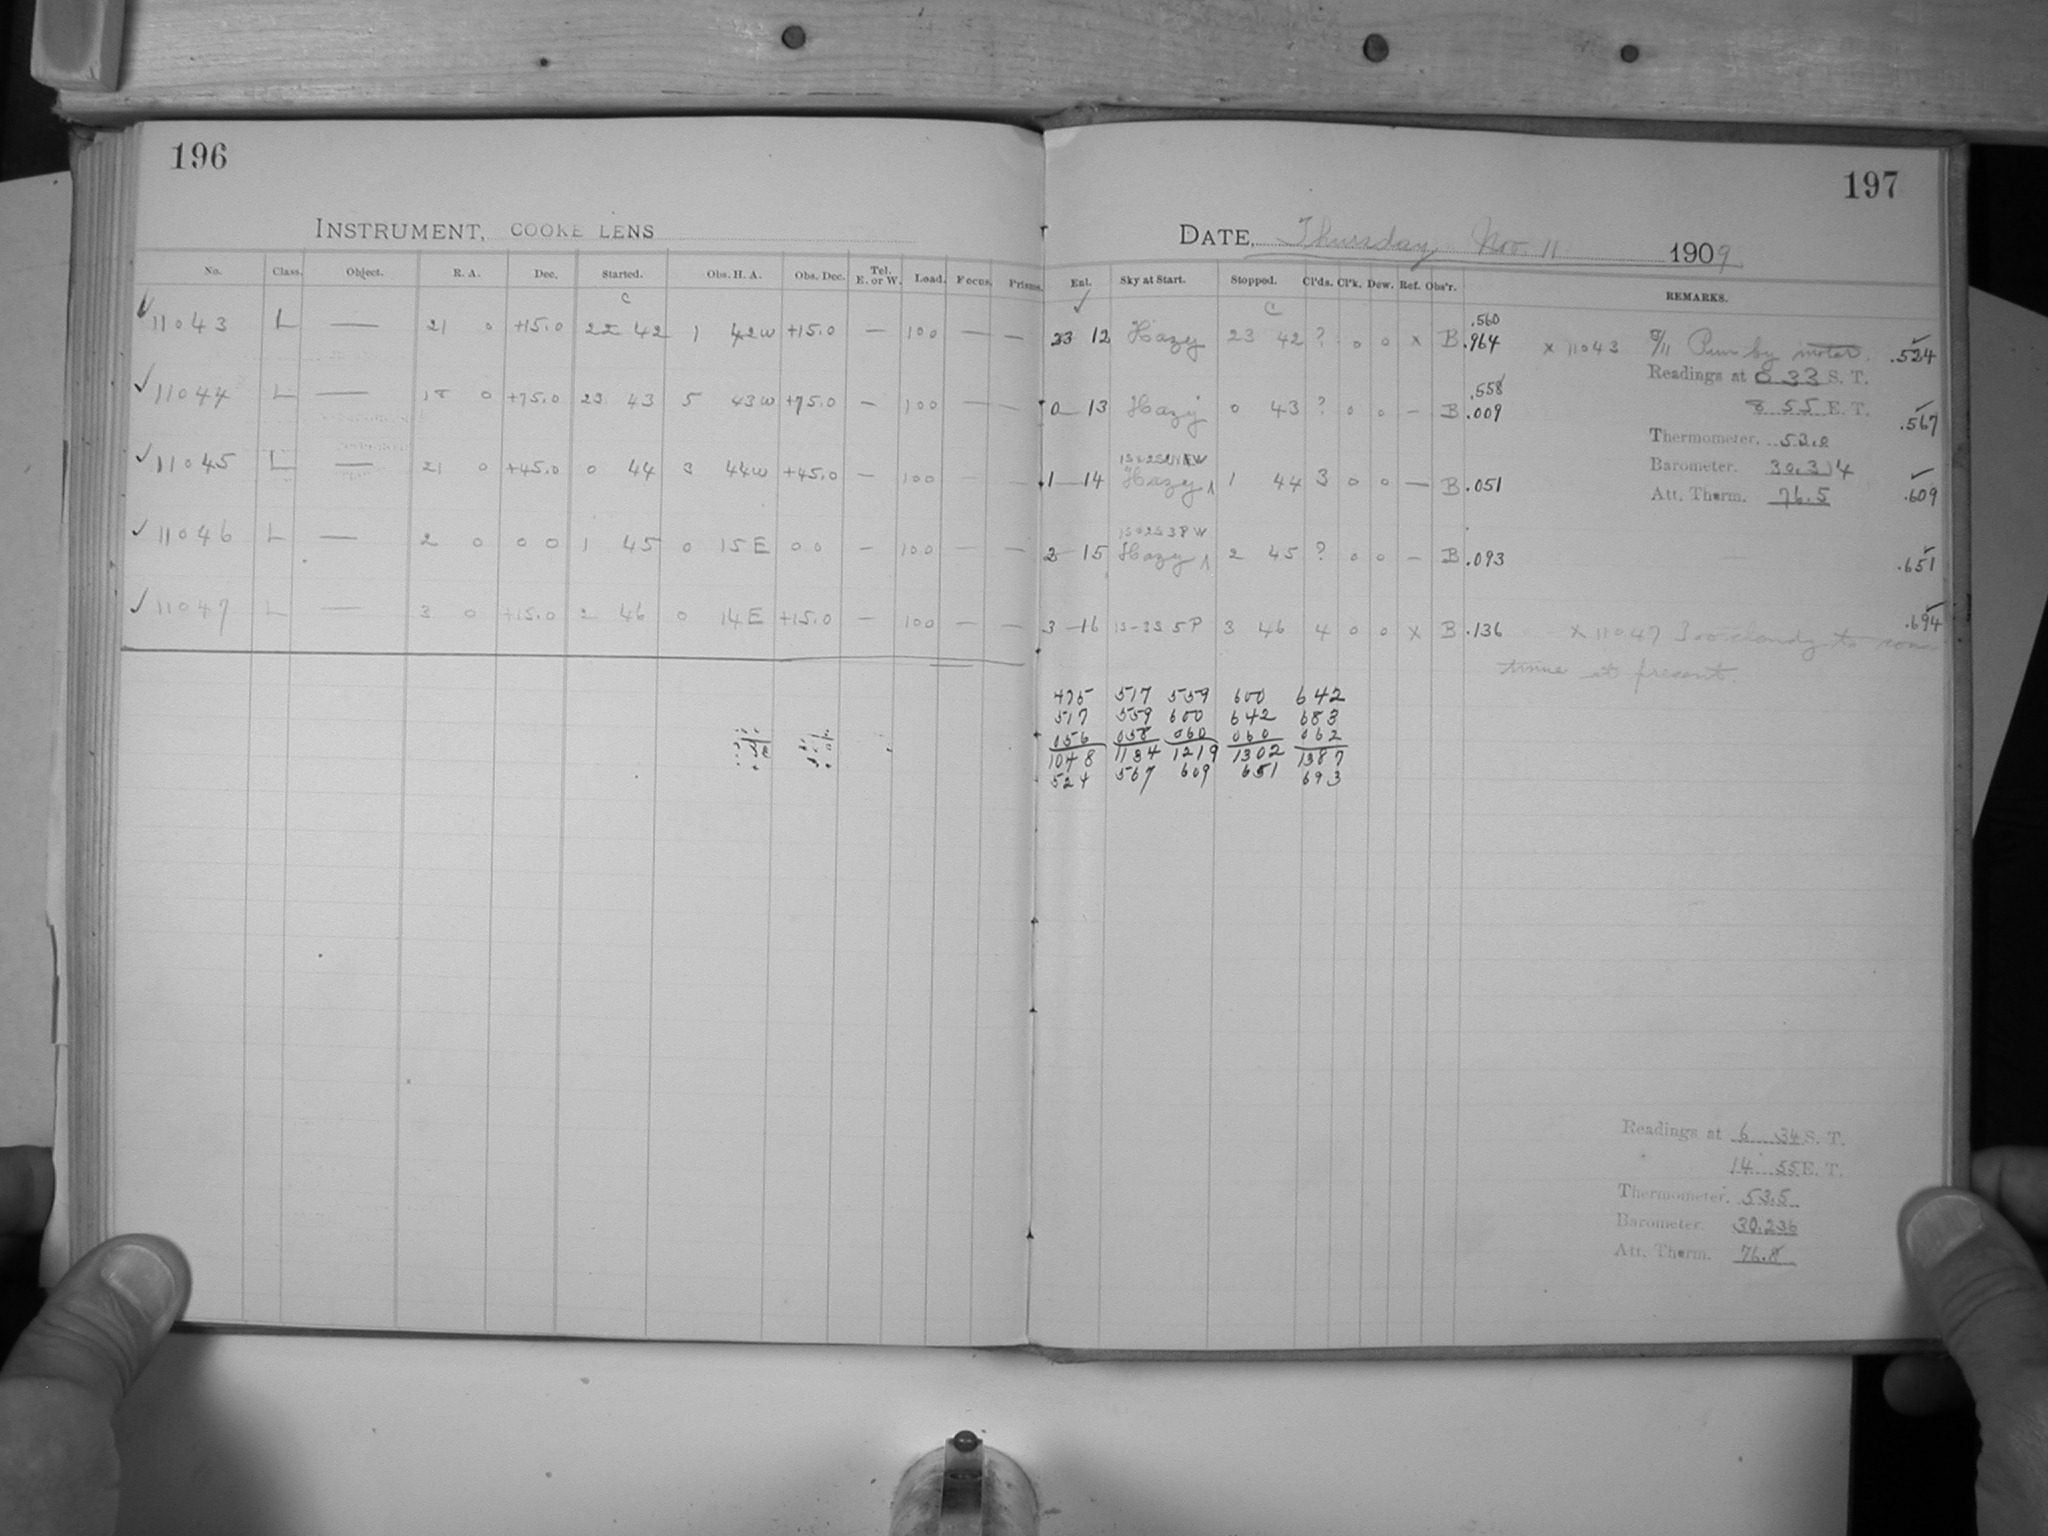 196
INSTRUMENT, COOKE LENS
No. Class. Object. R. A. Dec. Started. Obs. H. A. Obs. Dec. Tel. E. or W. Load. Focus. Prisms.
C
✓ 11043 L — 21 0 +15.0 22 42 1 42W +15.0 — 100 — —
✓ 11044 L — 18 0 +75.0 23 43 5 43W +75.0 — 100 — —
✓ 11045 L — 21 0 +45.0 0 44 3 44W +45.0 — 100 — —
✓ 11046 L — 2 0 0 0 1 45 0 15E 0 0 — 100 — —
✓ 11047 L — 3 0 +15.0 2 46 0 14E +15.0 — 100 — —
197
DATE, Thursday Nov. 11 1909
Ent. Sky at Start. Stopped. Cl'ds. Cl'k. Dew. Ref. Obs'r. REMARKS.
✓ C
.560
23 12 Hazy 23 42 ? 0 0 x B .964 x 11043 Run by motor. .524
Readings at 0 33 S. T.
8 55 E. T.
.558
0 13 Hazy 0 43 ? 0 0 — B .009 .567
Thermometer. 53.0
Barometer. 30.314
Att. Therm. 76.5
1 14 Hazy 1 44 3 0 0 — B .051 .609
2 15 Hazy 2 45 ? 0 0 — B .093 .651
3 16 1S-2S 5P 3 46 4 0 0 x B .136 x 11047 Too cloudy to con- .694
tinue at present.
475 517 559 600 642
517 559 600 642 683
056 058 060 060 062
1048 1134 1219 1302 1387
524 567 609 651 693
Readings at 6 34 S. T.
14 55 E. T.
Thermometer. 53.5
Barometer. 30.236
Att. Therm. 76.8